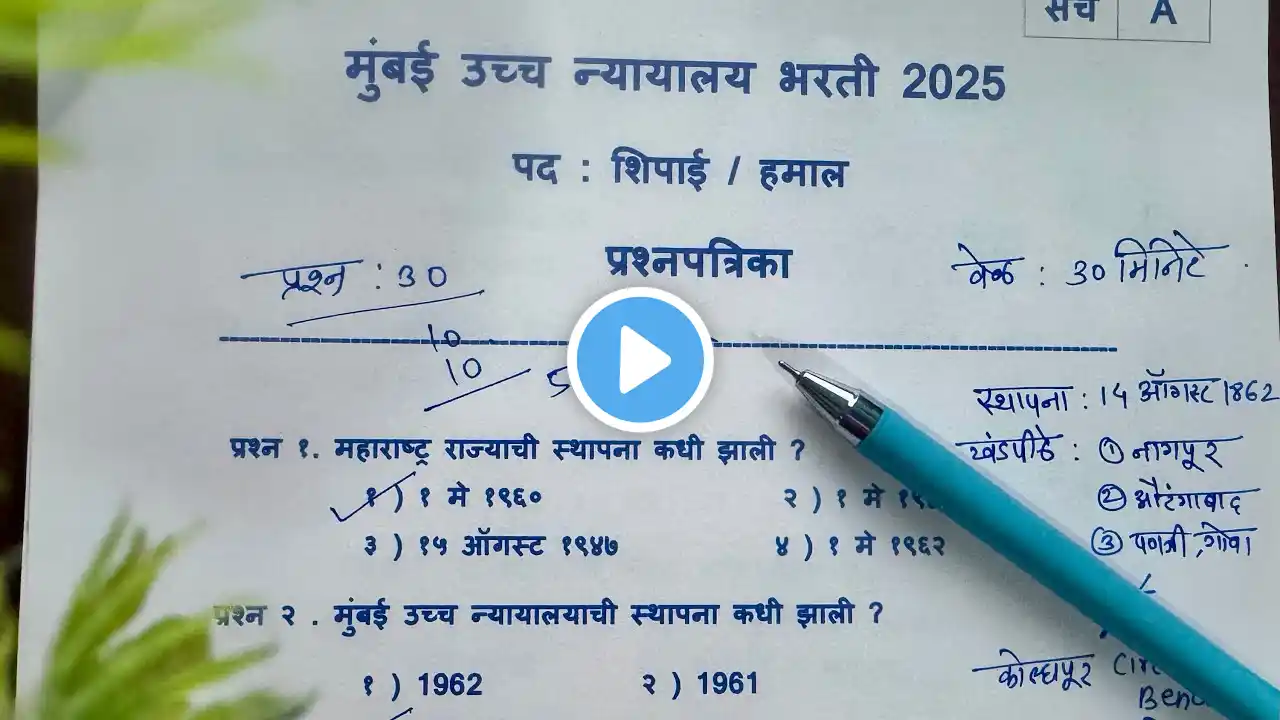 संच A
मुंबई उच्च न्यायालय भरती 2025
पद : शिपाई / हमाल
प्रश्नपत्रिका
प्रश्न : 30
वेळ : 30 मिनिटे
10
10
स्थापना : 14 ऑगस्ट 1862
प्रश्न १. महाराष्ट्र राज्याची स्थापना कधी झाली ?
खंडपीठे : ① नागपूर
१ ) १ मे १९६०
२ ) १ मे
② औरंगाबाद
३ ) १५ ऑगस्ट १९४७
४ ) १ मे १९६२
③ पणजी, गोवा
प्रश्न २ . मुंबई उच्च न्यायालयाची स्थापना कधी झाली ?
कोल्हापूर
१ ) 1962
२ ) 1961